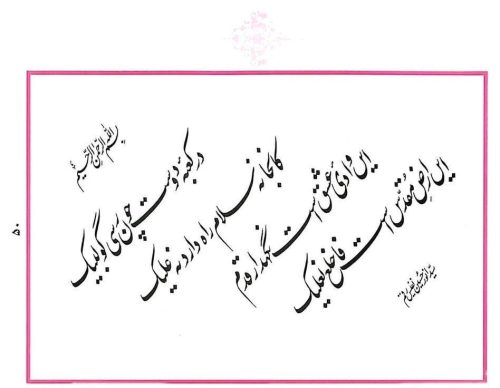 بسم الله الرحمن الرحیم
در کعبهٔ دوست چون رسی گو لبیک
کانجا نه سلام راه دارد نه علیک
این وادی عشق است نگهدار قدم
این ارض مقدس است فاخلع نعلیک
سید انور حسین نفیس رقم
۵۰